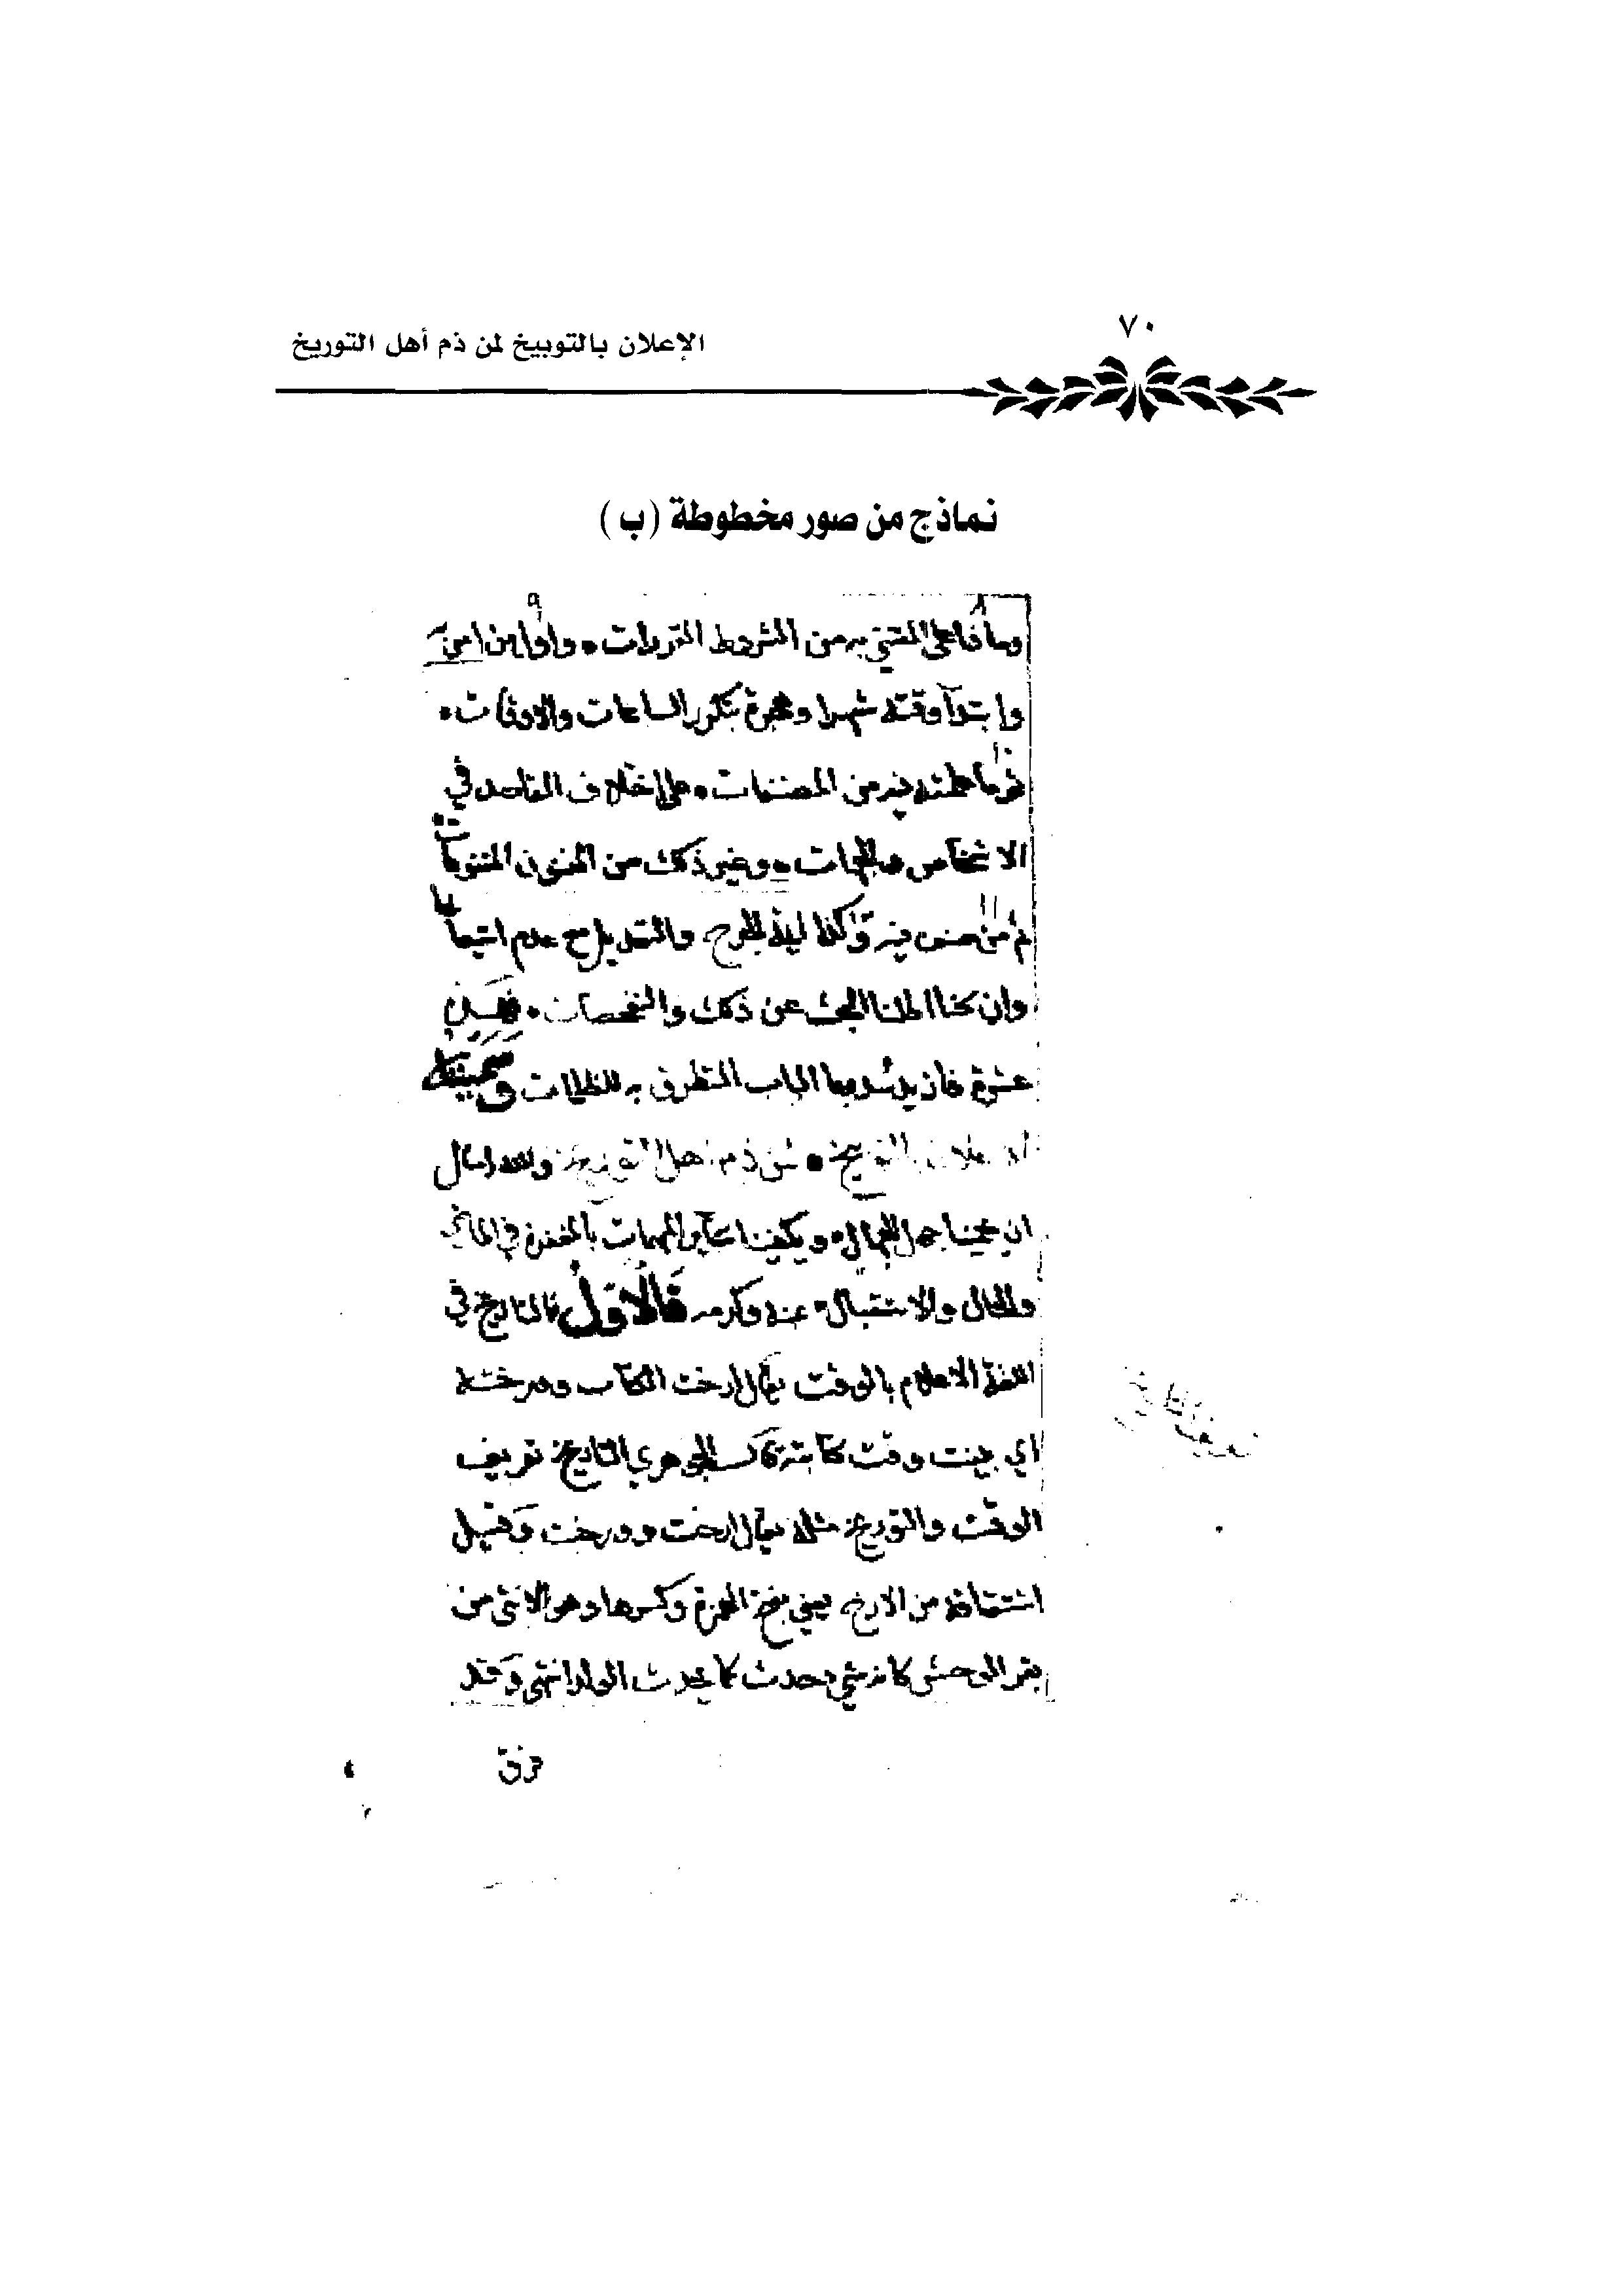 ٧٠
الإعلان بالتوبيخ لمن ذم أهل التوريخ
نماذج من صور مخطوطة (ب)
وماذا على المعتني به من الشروط المقررات • واول من امر به
وابتدا وقته شهرا وهجرة بتكرر الساعات والاوقات •
ثم ما علمته فيه من المصنفات • على اختلاف المقاصد في
الاشخاص والجهات • وغير ذلك من الفنون المتنوعات
ثم من صنف فيه وكذا ايمة الجرح والتعديل مع عدم استيعابها
وان كنا اطلنا البحث عن ذلك والتفحصات •
عشرة فازيد سد بها الباب المتطرق به للظلمات وسميته
الاعلان بالتوبيخ • لمن ذم اهل التوريخ والله اسال
ان يجنبنا جهل الجهال • ويكفينا سائر المهمات بالمغفرة في الماضي
والحال والاستقبال • بمنه وكرمه فالاول فالتاريخ في
اللغة الاعلام بالوقت يقال ارخت الكتاب وورخته
اي بينت وقت كتابته قال الجوهري التاريخ تعريف
الوقت والتوريخ مثله يقال ارخت وورخت وقيل
اشتقاقه من الارخ يعني بفتح الهمزة وكسرها وهو الانثى من
بقر الوحش كانه شي حدث كما يحدث الولد انتهى وقد
فرق